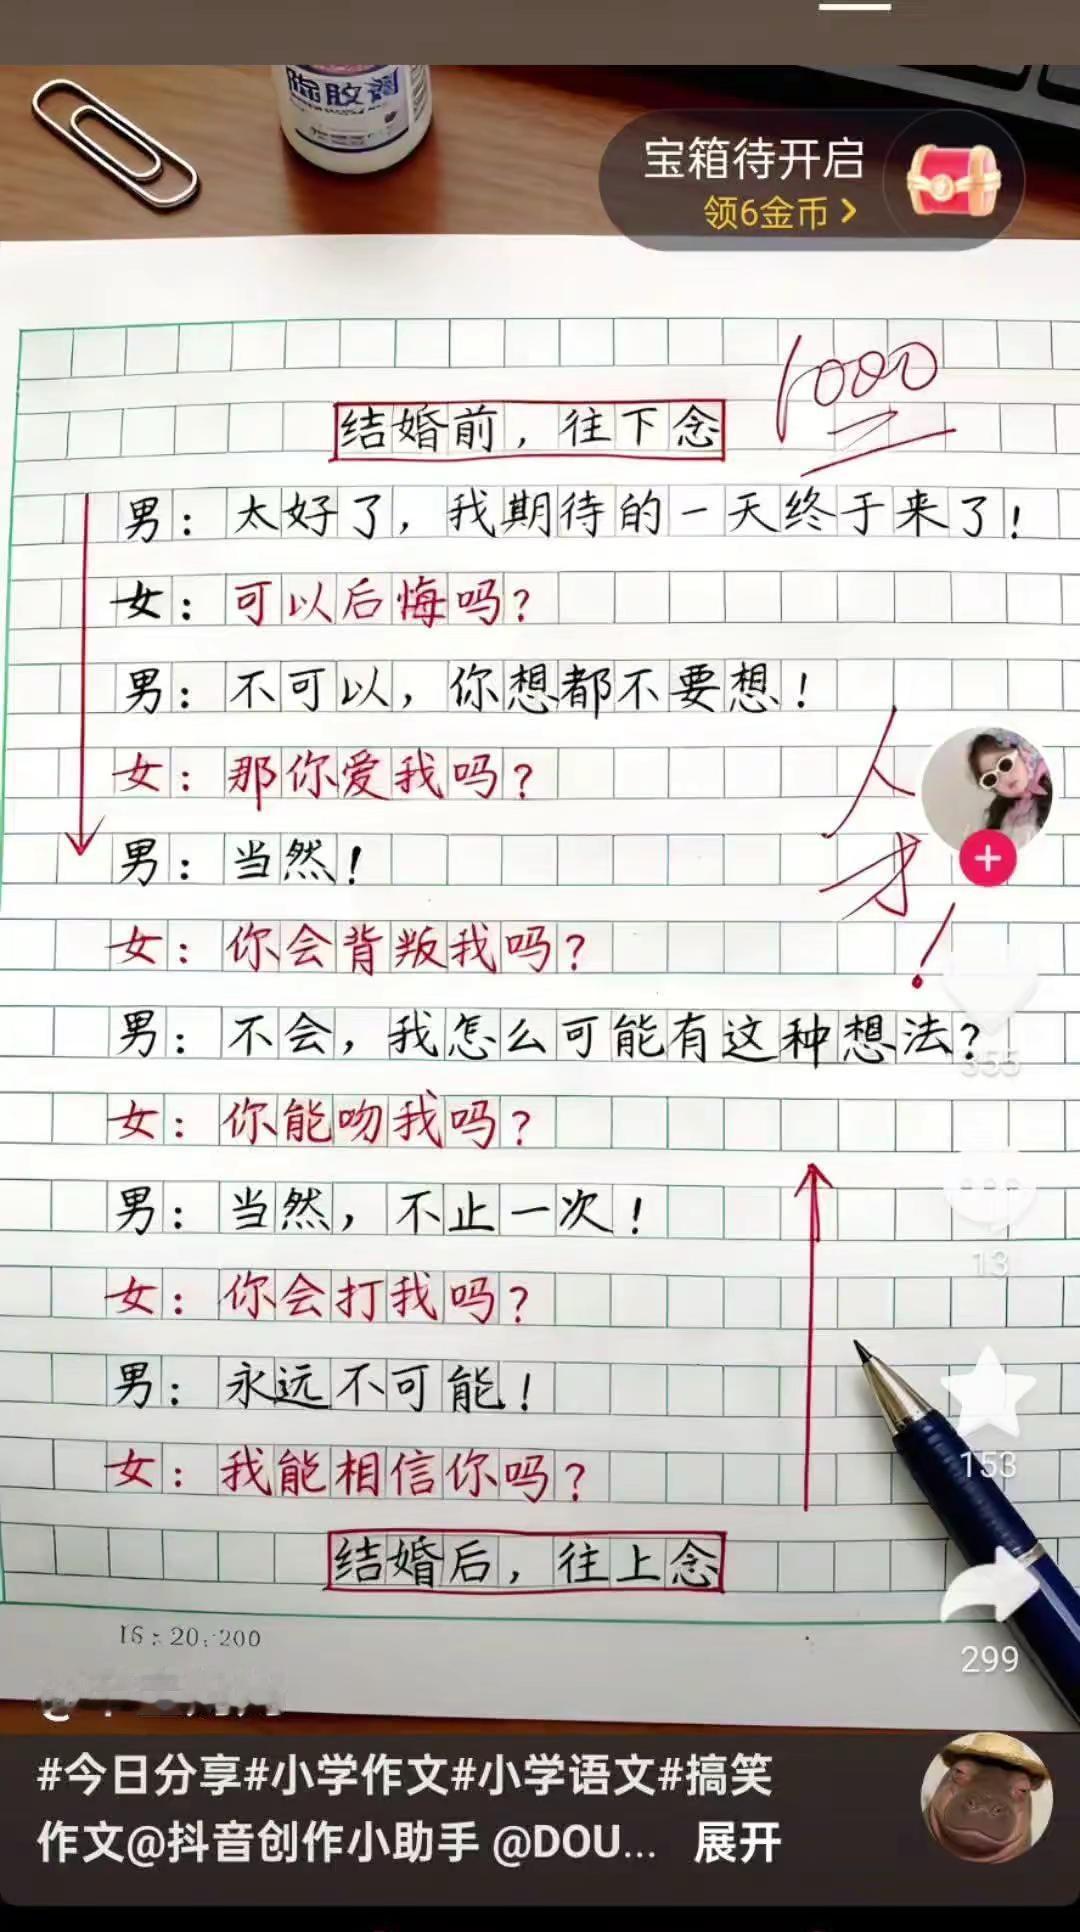 除胶剂
宝箱待开启
领6金币 >
1000
结婚前，往下念
男：太好了，我期待的一天终于来了！
女：可以后悔吗？
男：不可以，你想都不要想！
女：那你爱我吗？
男：当然！
人才！
女：你会背叛我吗？
男：不会，我怎么可能有这种想法？
355
女：你能吻我吗？
男：当然，不止一次！
13
女：你会打我吗？
男：永远不可能！
153
女：我能相信你吗？
结婚后，往上念
16：20：200
299
#今日分享#小学作文#小学语文#搞笑
作文@抖音创作小助手 @DOU... 展开